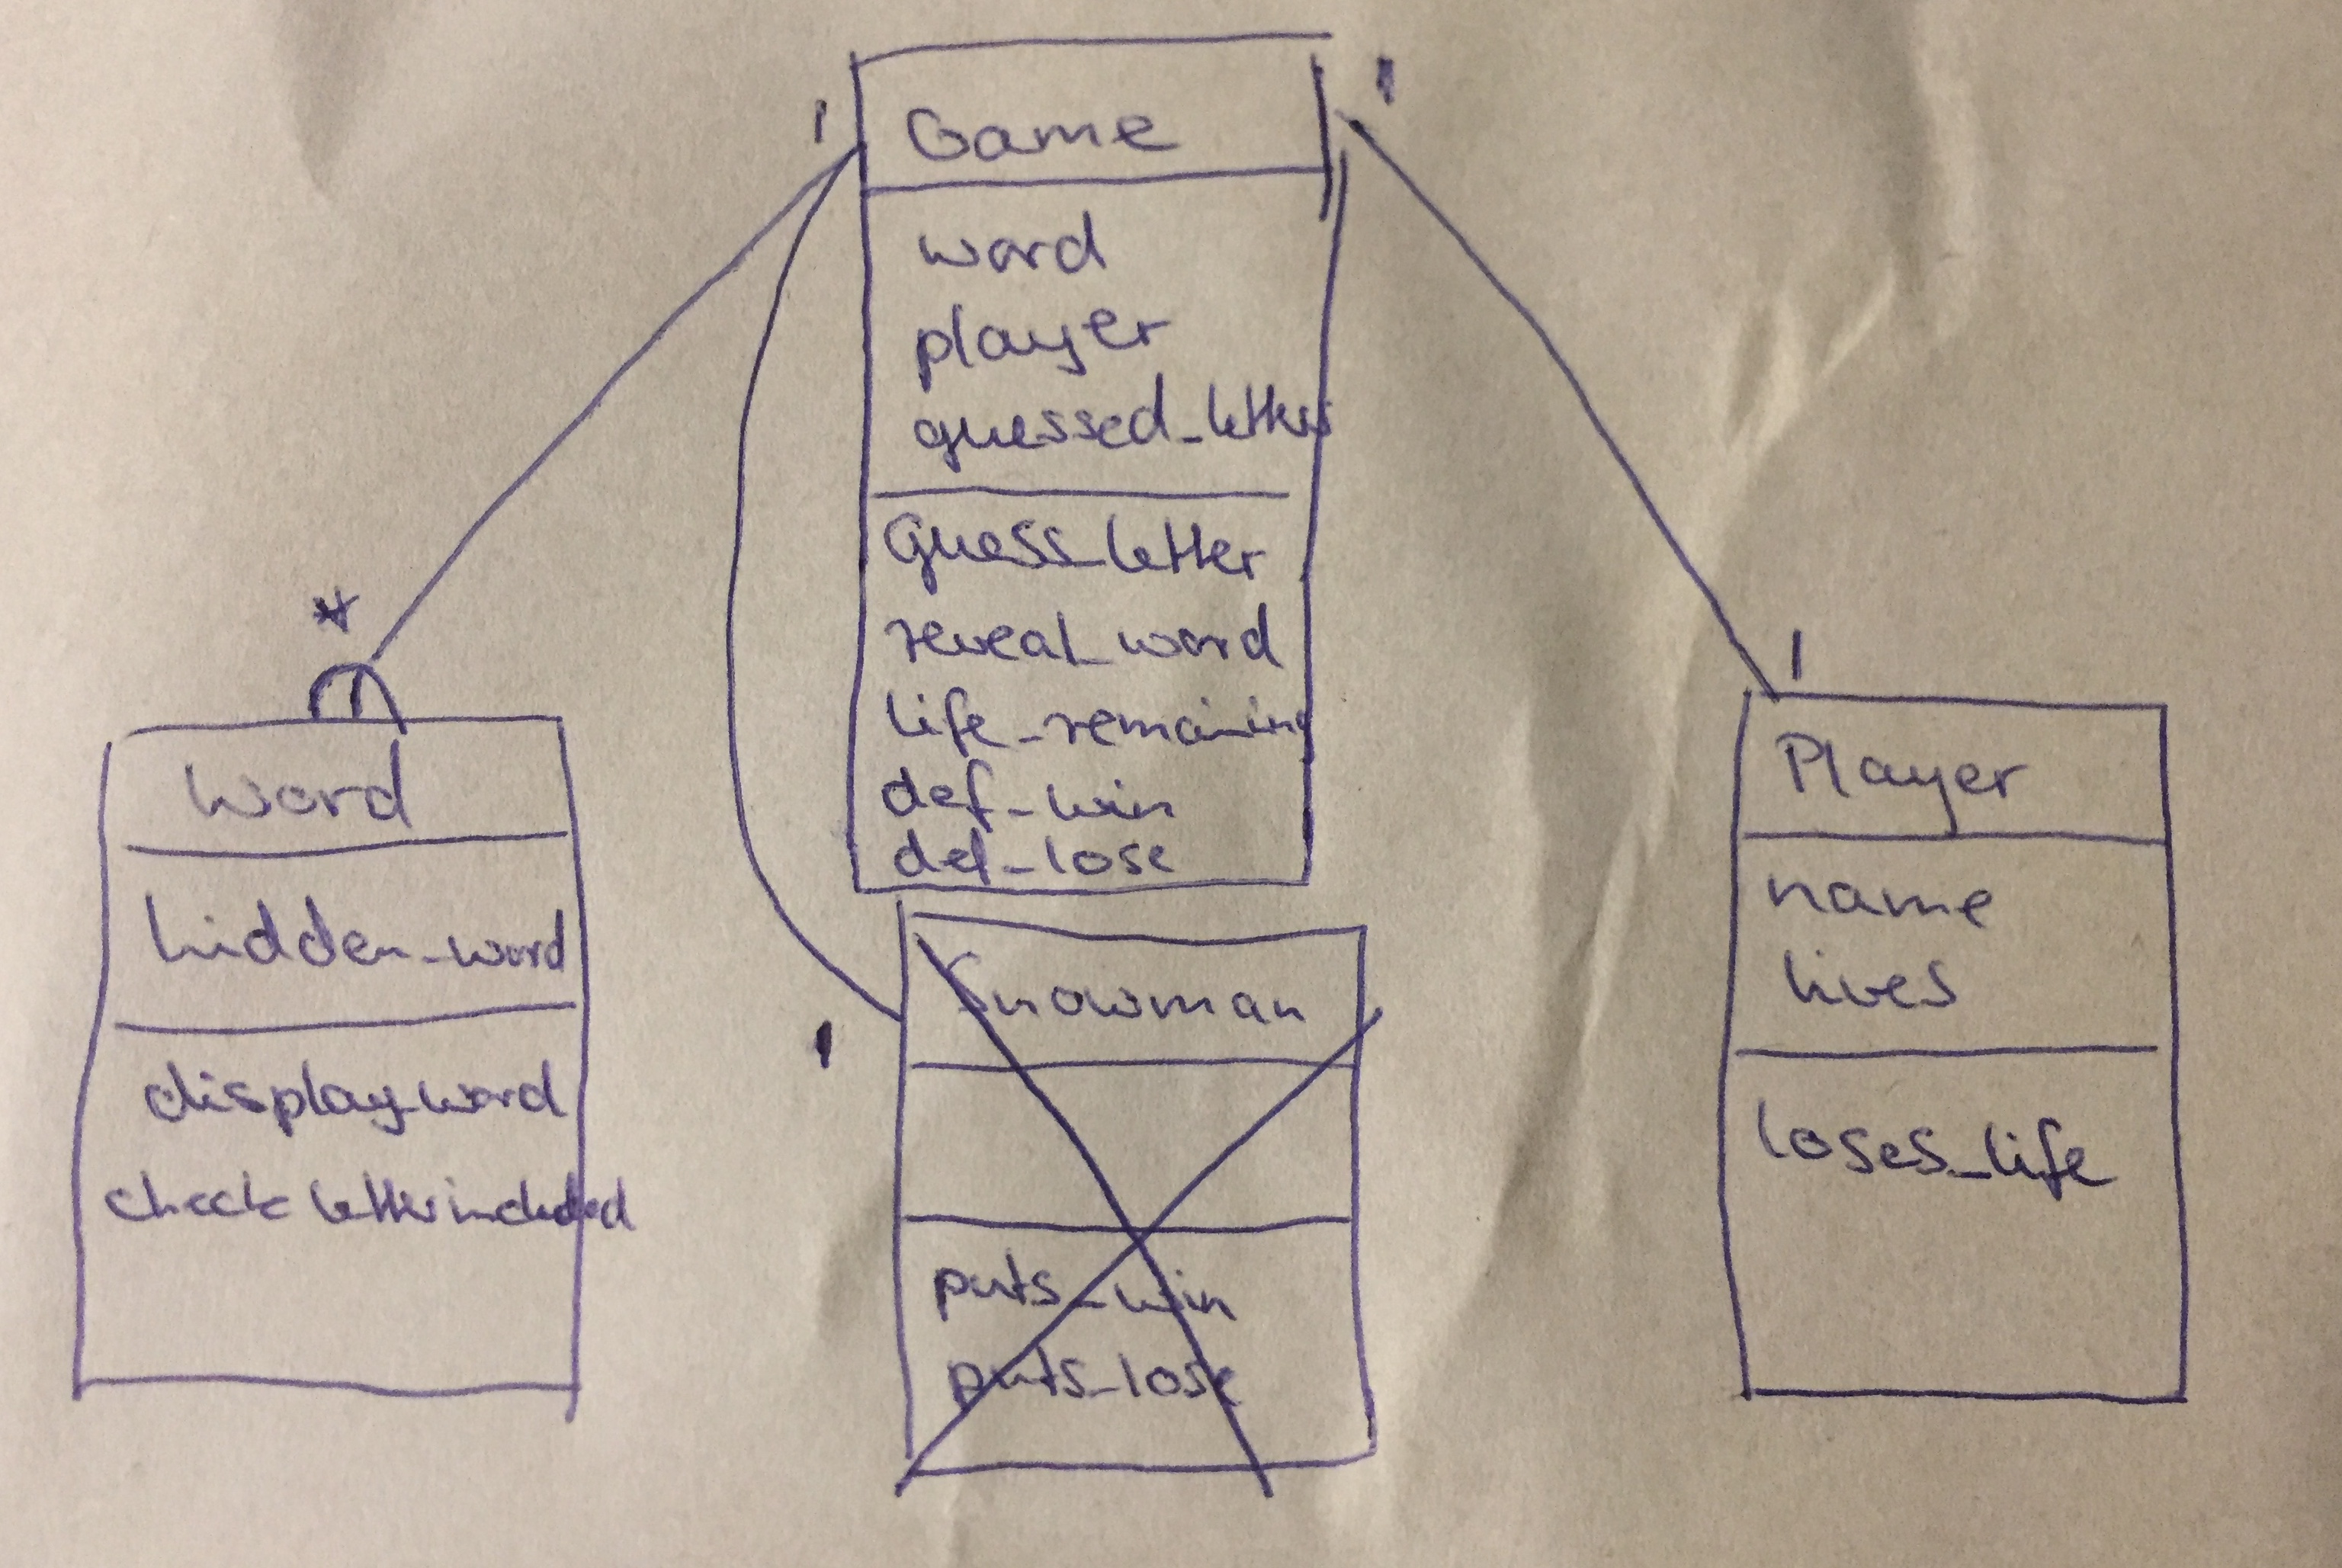 1
1
Game
word
player
guessed_letters
Guess_letter
reveal_word
life_remaining
def_win
def_lose
*
Word
hidden_word
display_word
check letter included
1
Snowman
puts_win
puts_lose
1
Player
name
lives
loses_life